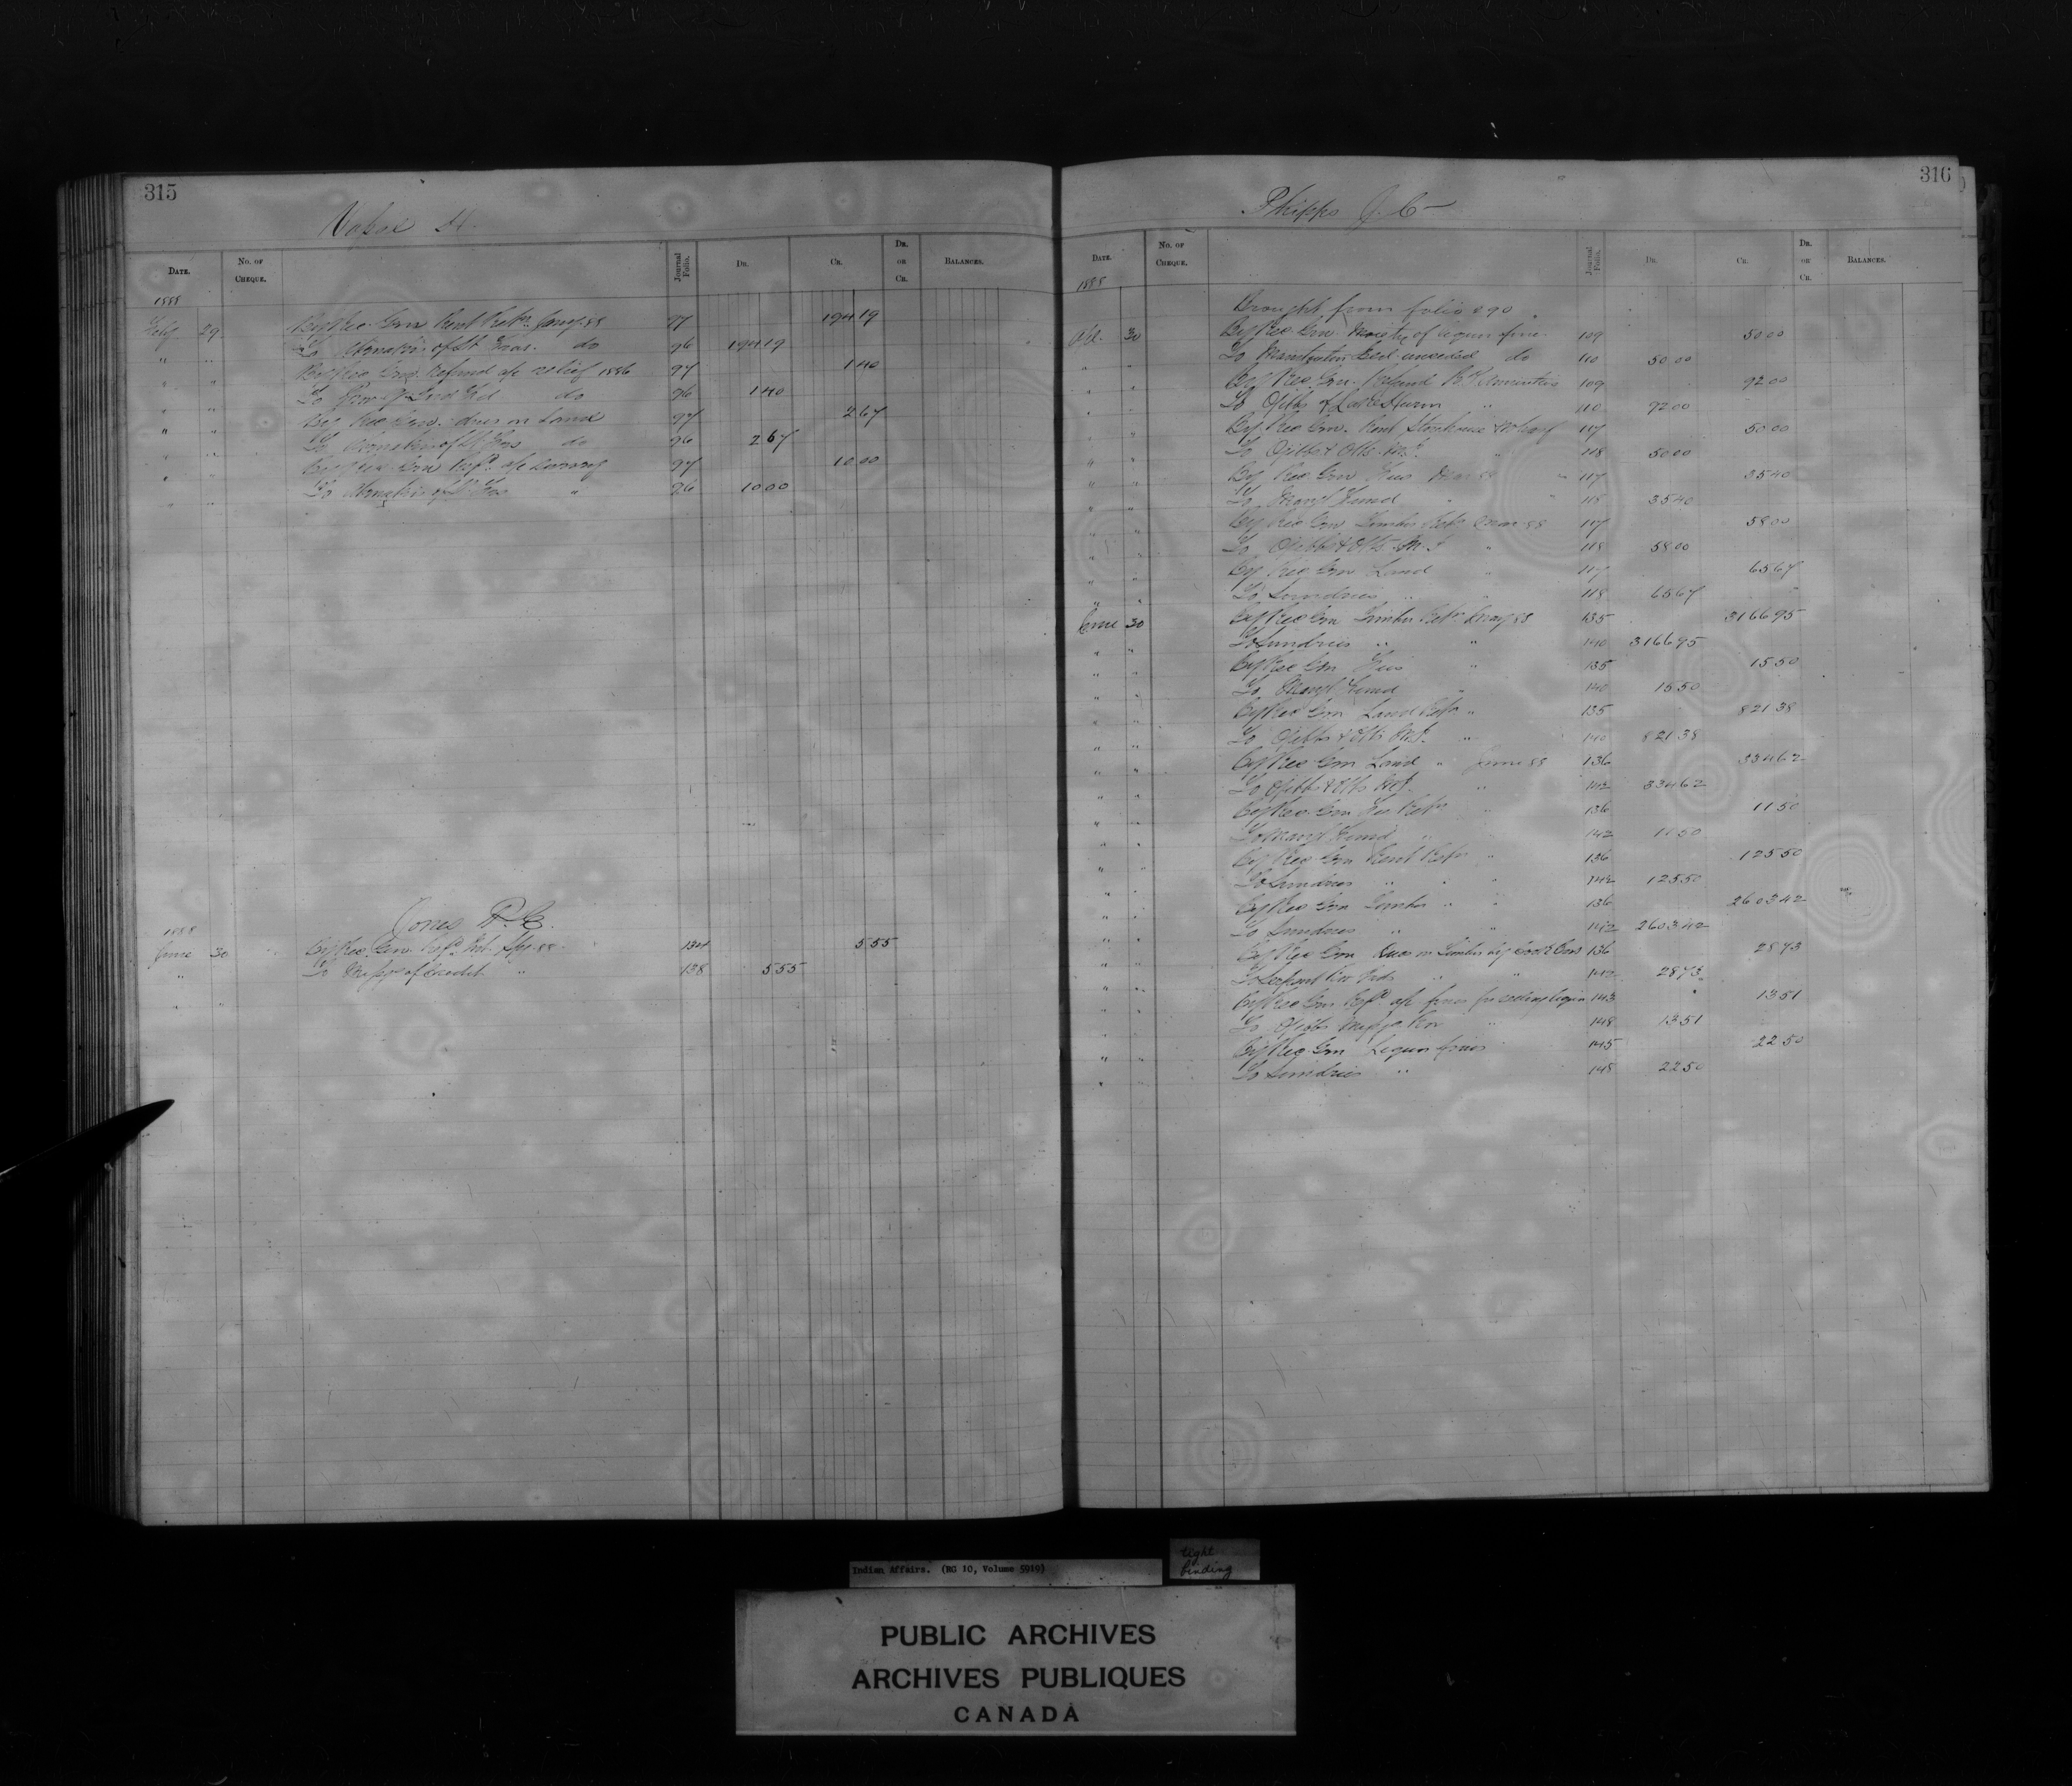 315
DATE. No. of Cheque. Journal Folio. Dr. Cr. Dr. or Cr. Balances.
1888
Feby 29 By Rec. Gen Rent Retn Jany 88 97 194 19
" " To do 96 194 19
" " By Rec Gen Refund a/c relief 1886 97 1 40
" " To do 96 1 40
" " By Rec Gen. dues on Land 97 2 67
" " To do 96 2 67
" " By Rec Gen 97 10 00
" " To " 96 10 00
Jones
1888
June 30 By Rec. Gen. 134 5 55
" " To of Credit " 138 5 55
316
Phipps J. C
Date. No. of Cheque. Journal Folio. Dr. Cr. Dr. or Cr. Balances.
1888
Brought from folio 290
Apl. 30 By Rec. Gen. Moiety of liquor fine 109 50 00
" " To Manitoulin Isld unceded do 110 50 00
" " By Rec. Gen. Refund 109 92 00
" " To Ojibbs of Lake Huron " 110 92 00
" " By Rec Gen. Rent Storehouse & Wharf 117 50 00
" " To Ojibbs & Otts M.I. " 118 50 00
" " By Rec Gen Fees Mar 88 117 35 40
" " To Mangt Fund " 118 35 40
" " By Rec Gen Timber Retn Mar 88 117 58 00
" " To Ojibbs & Otts M.I " 118 58 00
" " By Rec. Gen Land " 117 65 67
" " To Sundries " " 118 65 67
June 30 By Rec Gen Timber Retn May 88 135 3166 95
" " To Sundries " " 140 3166 95
" " By Rec Gen Fees " 135 15 50
" " To Mangt Fund " 140 15 50
" " By Rec Gen Land Retn " 135 821 38
" " To Ojibbs & Otts M.I. " 140 821 38
" " By Rec Gen Land " June 88 136 334 62
" " To Ojibbs & Otts M.I. " 142 334 62
" " By Rec. Gen Fee Retn " 136 11 50
" " To Mangt Fund " " 142 11 50
" " By Rec Gen Rent Retn " 136 125 50
" " To Sundries " " " 142 125 50
" " By Rec Gen Timber " " 136 2603 42
" " To Sundries " " 142 2603 42
" " By Rec Gen Dues on Timber by 136 28 73
" " To Serpent Riv Inds " " 142 28 73
" " By Rec Gen a/c fines for selling liquor 143 13 51
" " To Ojibbs Missga Riv " 148 13 51
" " By Rec Gen Liquor fines 145 22 50
" " To Sundries " 148 22 50
Indian Affairs. (RG 10, Volume 5919)
tight binding
PUBLIC ARCHIVES
ARCHIVES PUBLIQUES
CANADA